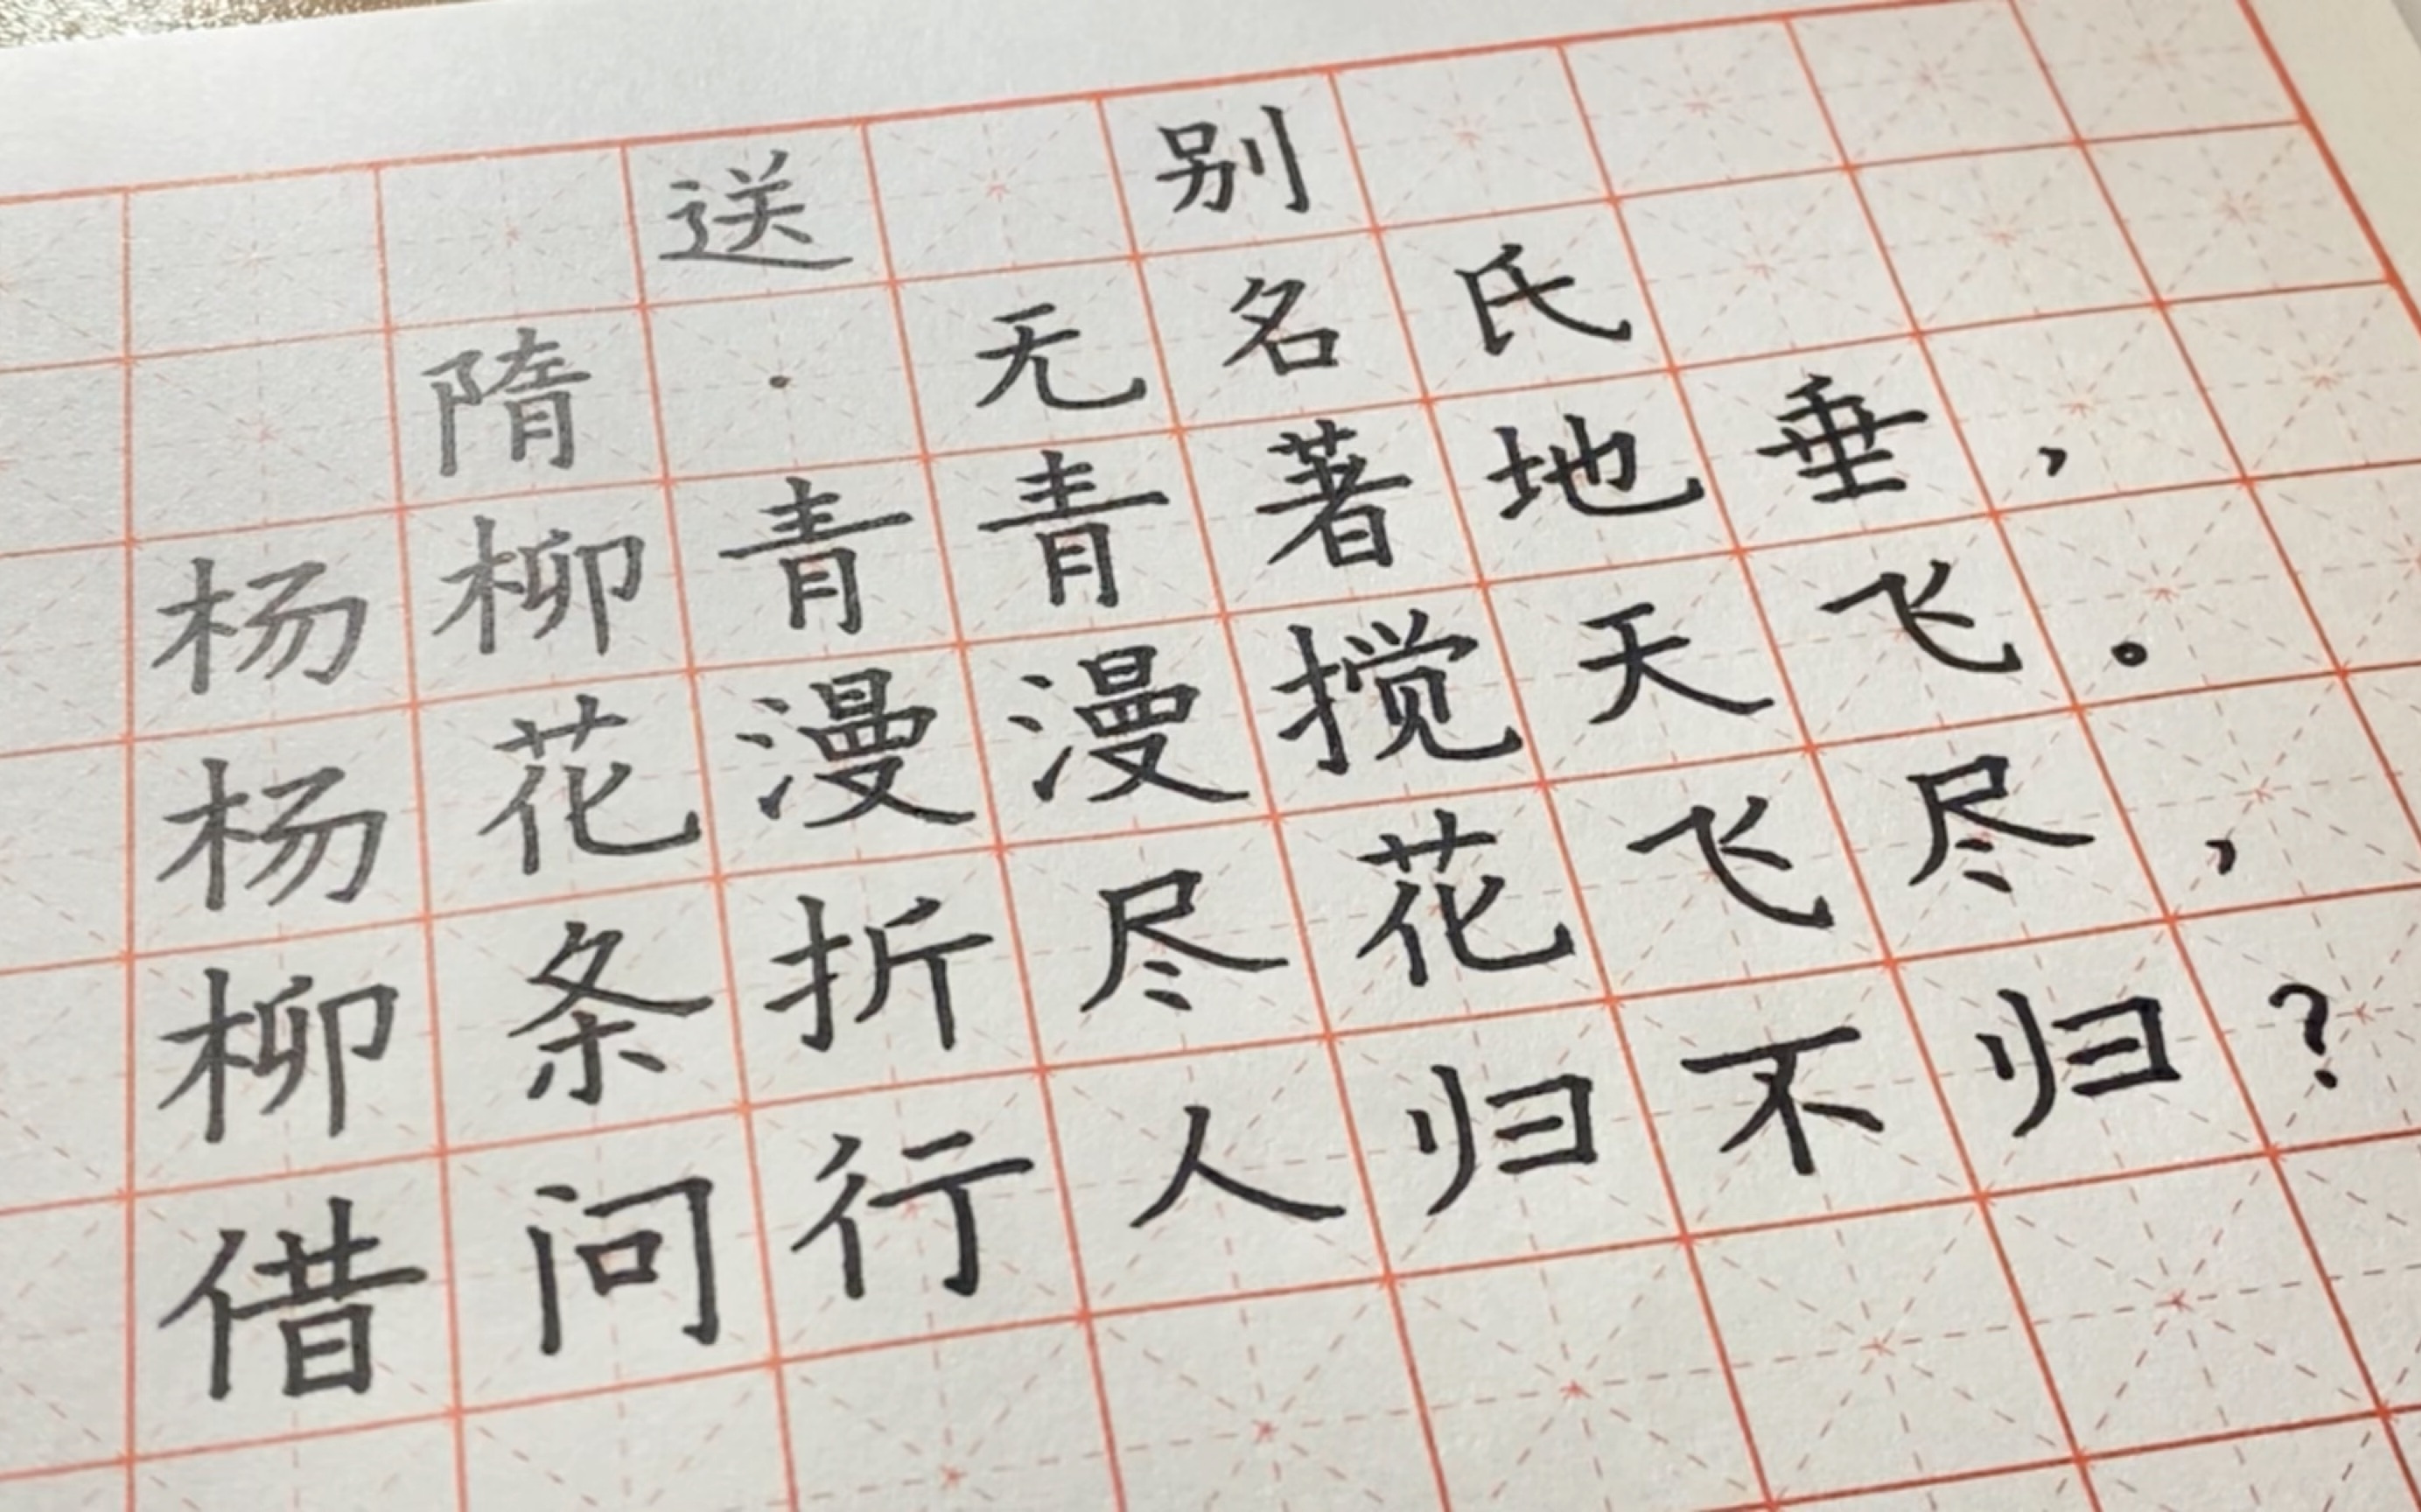 送别
隋·无名氏
杨柳青青著地垂，
杨花漫漫搅天飞。
柳条折尽花飞尽，
借问行人归不归？